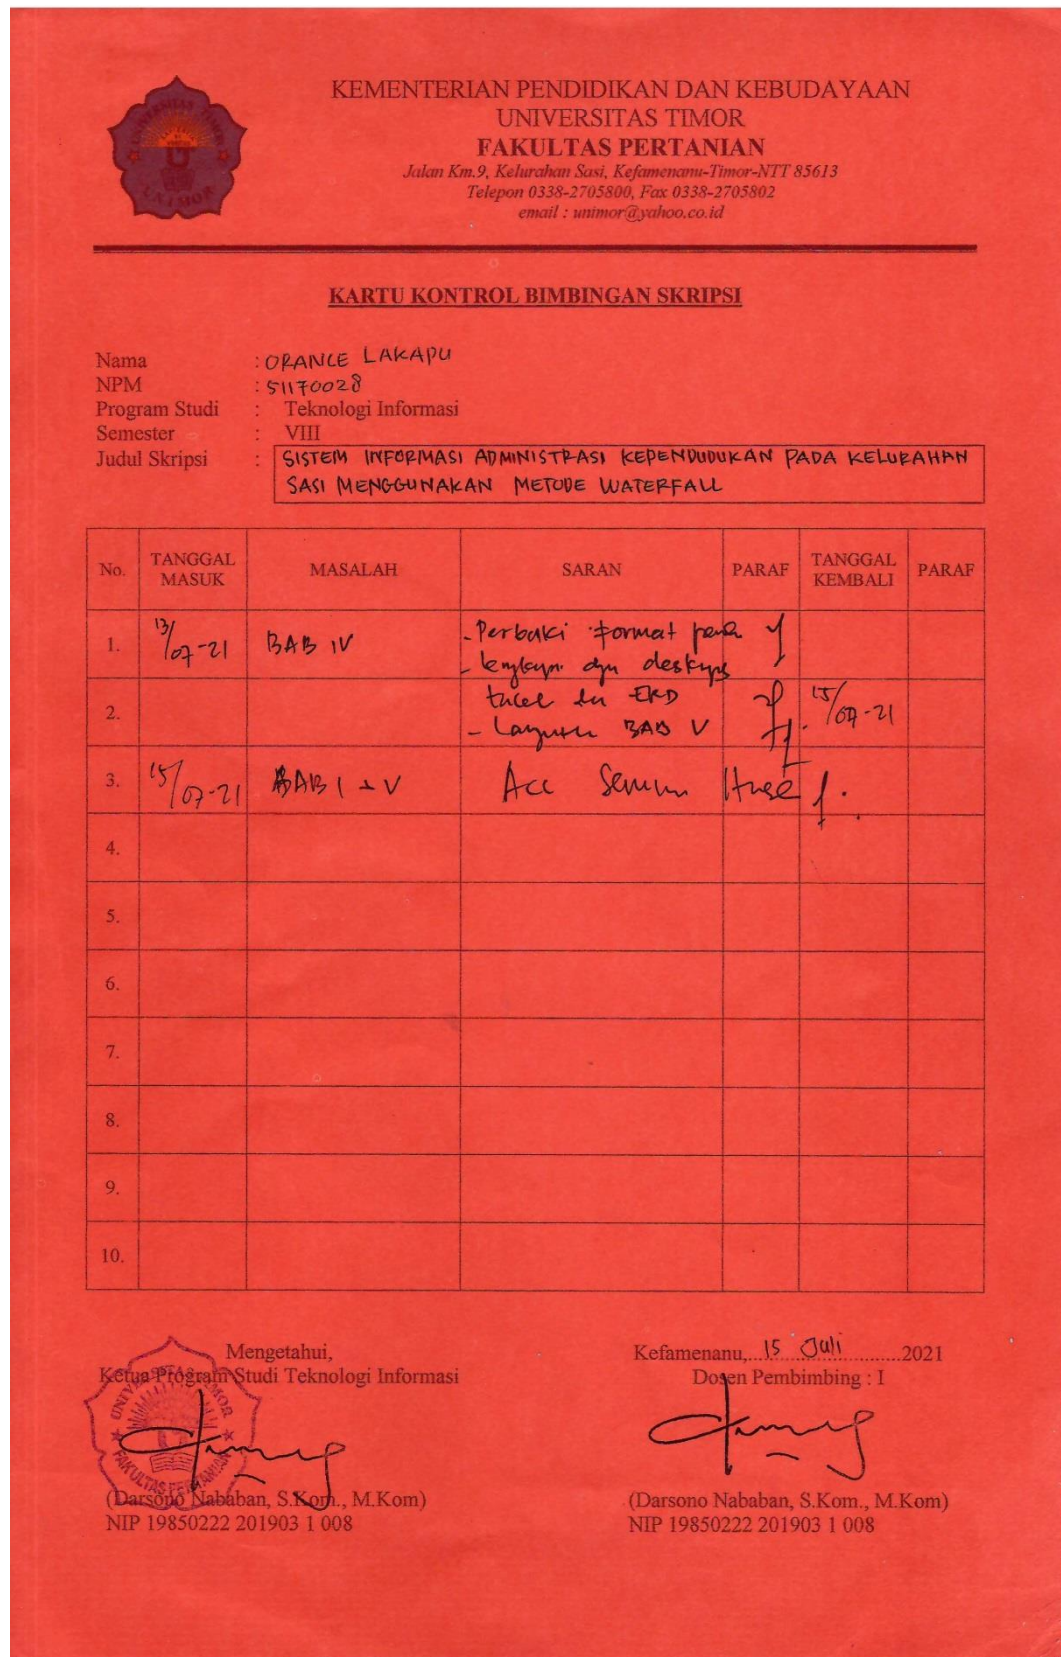 KEMENTERIAN PENDIDIKAN DAN KEBUDAYAAN
UNIVERSITAS TIMOR
FAKULTAS PERTANIAN
Jalan Km.9, Kelurahan Sasi, Kefamenanu-Timor-NTT 85613
Telepon 0338-2705800, Fax 0338-2705802
email : unimor@yahoo.co.id
UNIVERSITAS TIMOR
UNIMOR
KARTU KONTROL BIMBINGAN SKRIPSI
Nama : ORANCE LAKAPU
NPM : 51170028
Program Studi : Teknologi Informasi
Semester : VIII
Judul Skripsi : SISTEM INFORMASI ADMINISTRASI KEPENDUDUKAN PADA KELURAHAN
SASI MENGGUNAKAN METODE WATERFALL
No. TANGGAL MASUK MASALAH SARAN PARAF TANGGAL KEMBALI PARAF
1. 13/07-21 BAB IV - Perbaiki format
- deskrips
2. ERD 15/07-21
- BAB V
3. 15/07-21 BAB I + V Acc
4.
5.
6.
7.
8.
9.
10.
Mengetahui,
Ketua Program Studi Teknologi Informasi
UNIVERSITAS TIMOR
FAKULTAS PERTANIAN
(Darsono Nababan, S.Kom., M.Kom)
NIP 19850222 201903 1 008
Kefamenanu,...15 Juli...........2021
Dosen Pembimbing : I
(Darsono Nababan, S.Kom., M.Kom)
NIP 19850222 201903 1 008